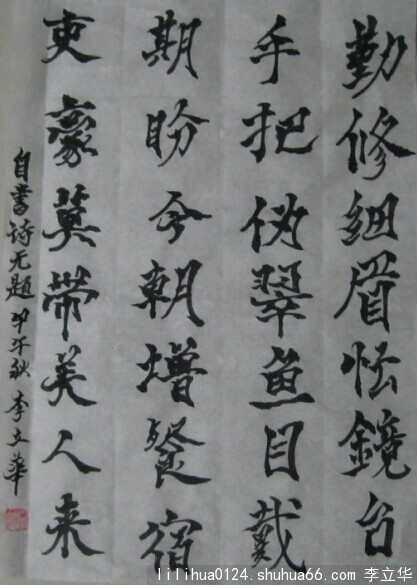 勤修细眉怯鏡台
手把伪翠鱼目戴
期盼今朝增宿
吏豪莫帶美人来
自書诗无题甲午秋李立華
lilihua0124.shuhua66.com 李立华